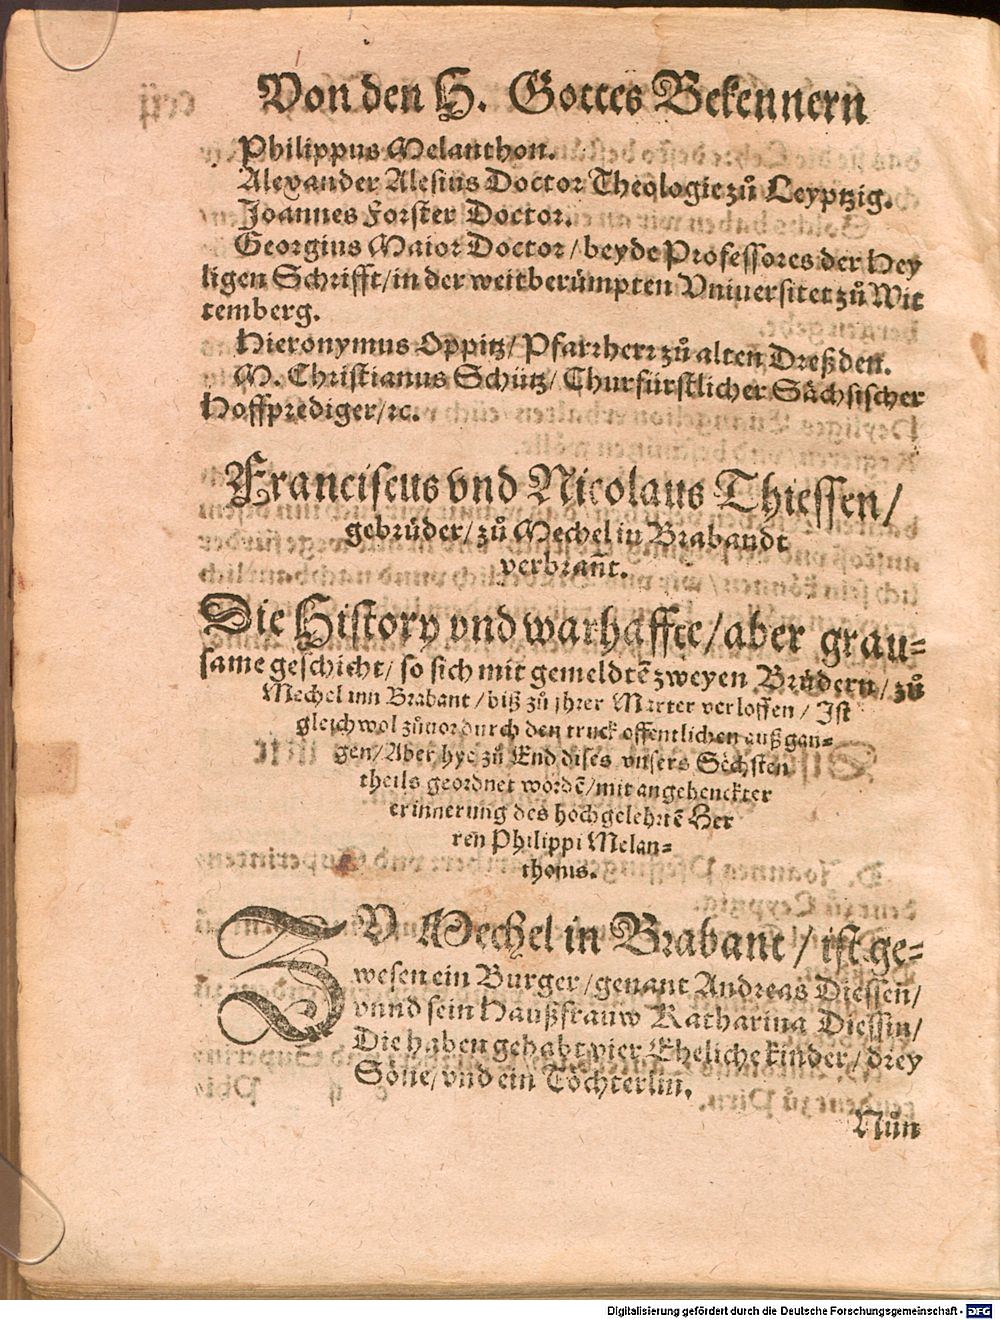 Von den H. Gottes Bekennern
Philippus Melanthon.
Alexander Alesius Doctor Theologie zů Leyptzig.
Joannes Forster Doctor.
Georgius Maior Doctor / beyde Professores der Hey
ligen Schrifft / in der weitberümpten Vniuersitet zů Wit
temberg.
Hieronymus Oppitz / Pfarrherr zů alten Dreßden.
M. Christianus Schütz / Churfürstlicher Sächsischer
Hoffprediger / ꝛc.
Franciscus vnd Nicolaus Thiessen /
gebrüder / zů Mechel in Brabandt
verbrañt.
Die History vnd warhaffte / aber grau-
same geschicht / so sich mit gemeldtẽ zweyen Brüdern / zů
Mechel inn Brabant / biß zů jhrer Marter verloffen / Ist
gleichwol zůuor durch den truck offentlichen außgan-
gen / Aber hye zů End dises vnsers Sechsten
theils geordnet wordẽ / mit angehenckter
erinnerung des hochgelehrtẽ Her
ren Philippi Melan-
thonis.
ZV Mechel in Brabant / ist ge-
wesen ein Burger / genant Andreas Diessen /
vnnd sein Haußfrauw Katharina Diessin /
Die haben gehabt vier Eheliche kinder / drey
Söne / vnd ein Töchterlin.
Nůn
Digitalisierung gefördert durch die Deutsche Forschungsgemeinschaft - DFG